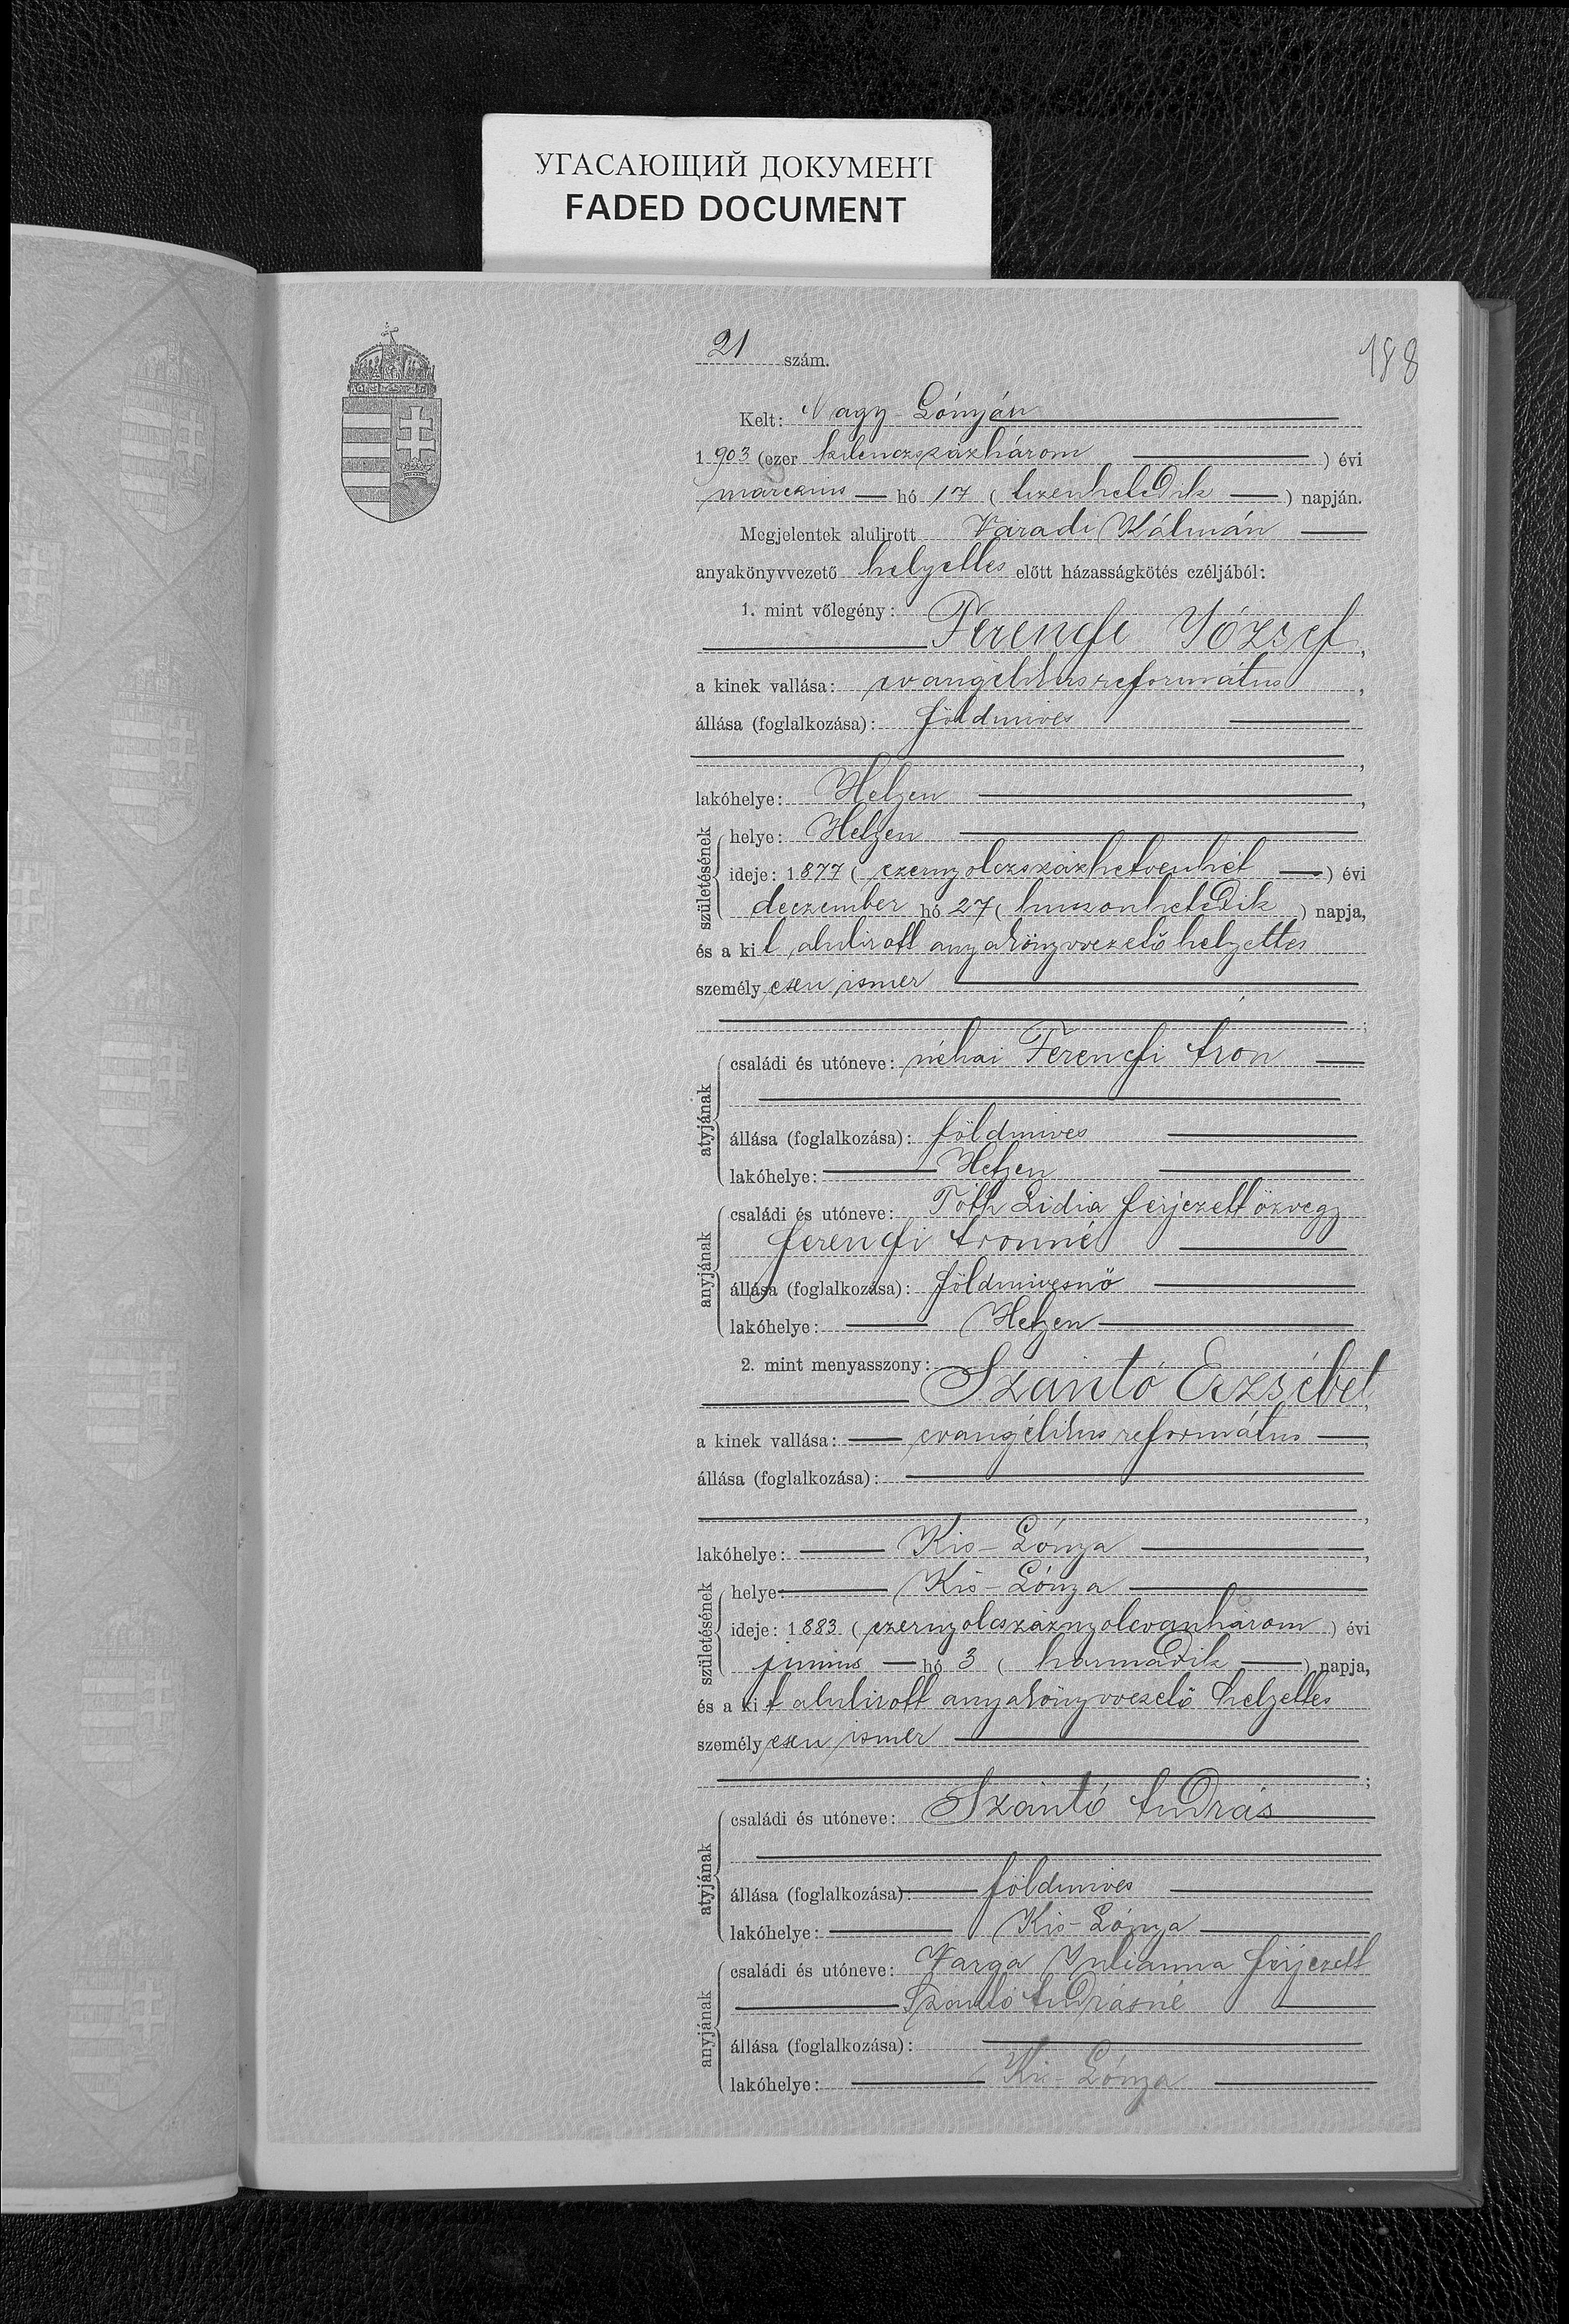 УГАСАЮЩИЙ ДОКУМЕНТ
FADED DOCUMENT
188
21 szám.
Kelt: Nagy-Lónyán
1903 (ezer kilenczszázhárom) évi
marczius hó 17 (tizenhetedik) napján.
Megjelentek alulirott Váradi Kálmán
anyakönyvvezető helyettes előtt házasságkötés czéljából:
1. mint vőlegény:
Ferencfi József,
a kinek vallása: evangélikus református,
állása (foglalkozása): földmives
,
lakóhelye: Hetyen,
születésének
helye: Hetyen
ideje: 1877 (ezernyolczszázhetvenhét) évi
deczember hó 27 (huszonhetedik) napja,
és a kit alulirott anyakönyvvezető helyettes
személyesen ismer
;
atyjának
családi és utóneve: néhai Ferencfi Áron
állása (foglalkozása): földmives
lakóhelye: Hetyen
anyjának
családi és utóneve: Tóth Lidia férjezett özvegy
Ferencfi Áronné
állása (foglalkozása): földmivesnő
lakóhelye: Hetyen
2. mint menyasszony:
Szántó Erzsébet,
a kinek vallása: evangélikus református,
állása (foglalkozása):
,
lakóhelye: Kis-Lónya,
születésének
helye: Kis-Lónya
ideje: 1883 (ezernyolcszáznyolcvanhárom) évi
junius hó 3 (harmadik) napja,
és a kit alulirott anyakönyvvezető helyettes
személyesen ismer
;
atyjának
családi és utóneve: Szántó András
állása (foglalkozása): földmives
lakóhelye: Kis-Lónya
anyjának
családi és utóneve: Varga Julianna férjezett
Szántó Andrásné
állása (foglalkozása):
lakóhelye: Kis-Lónya